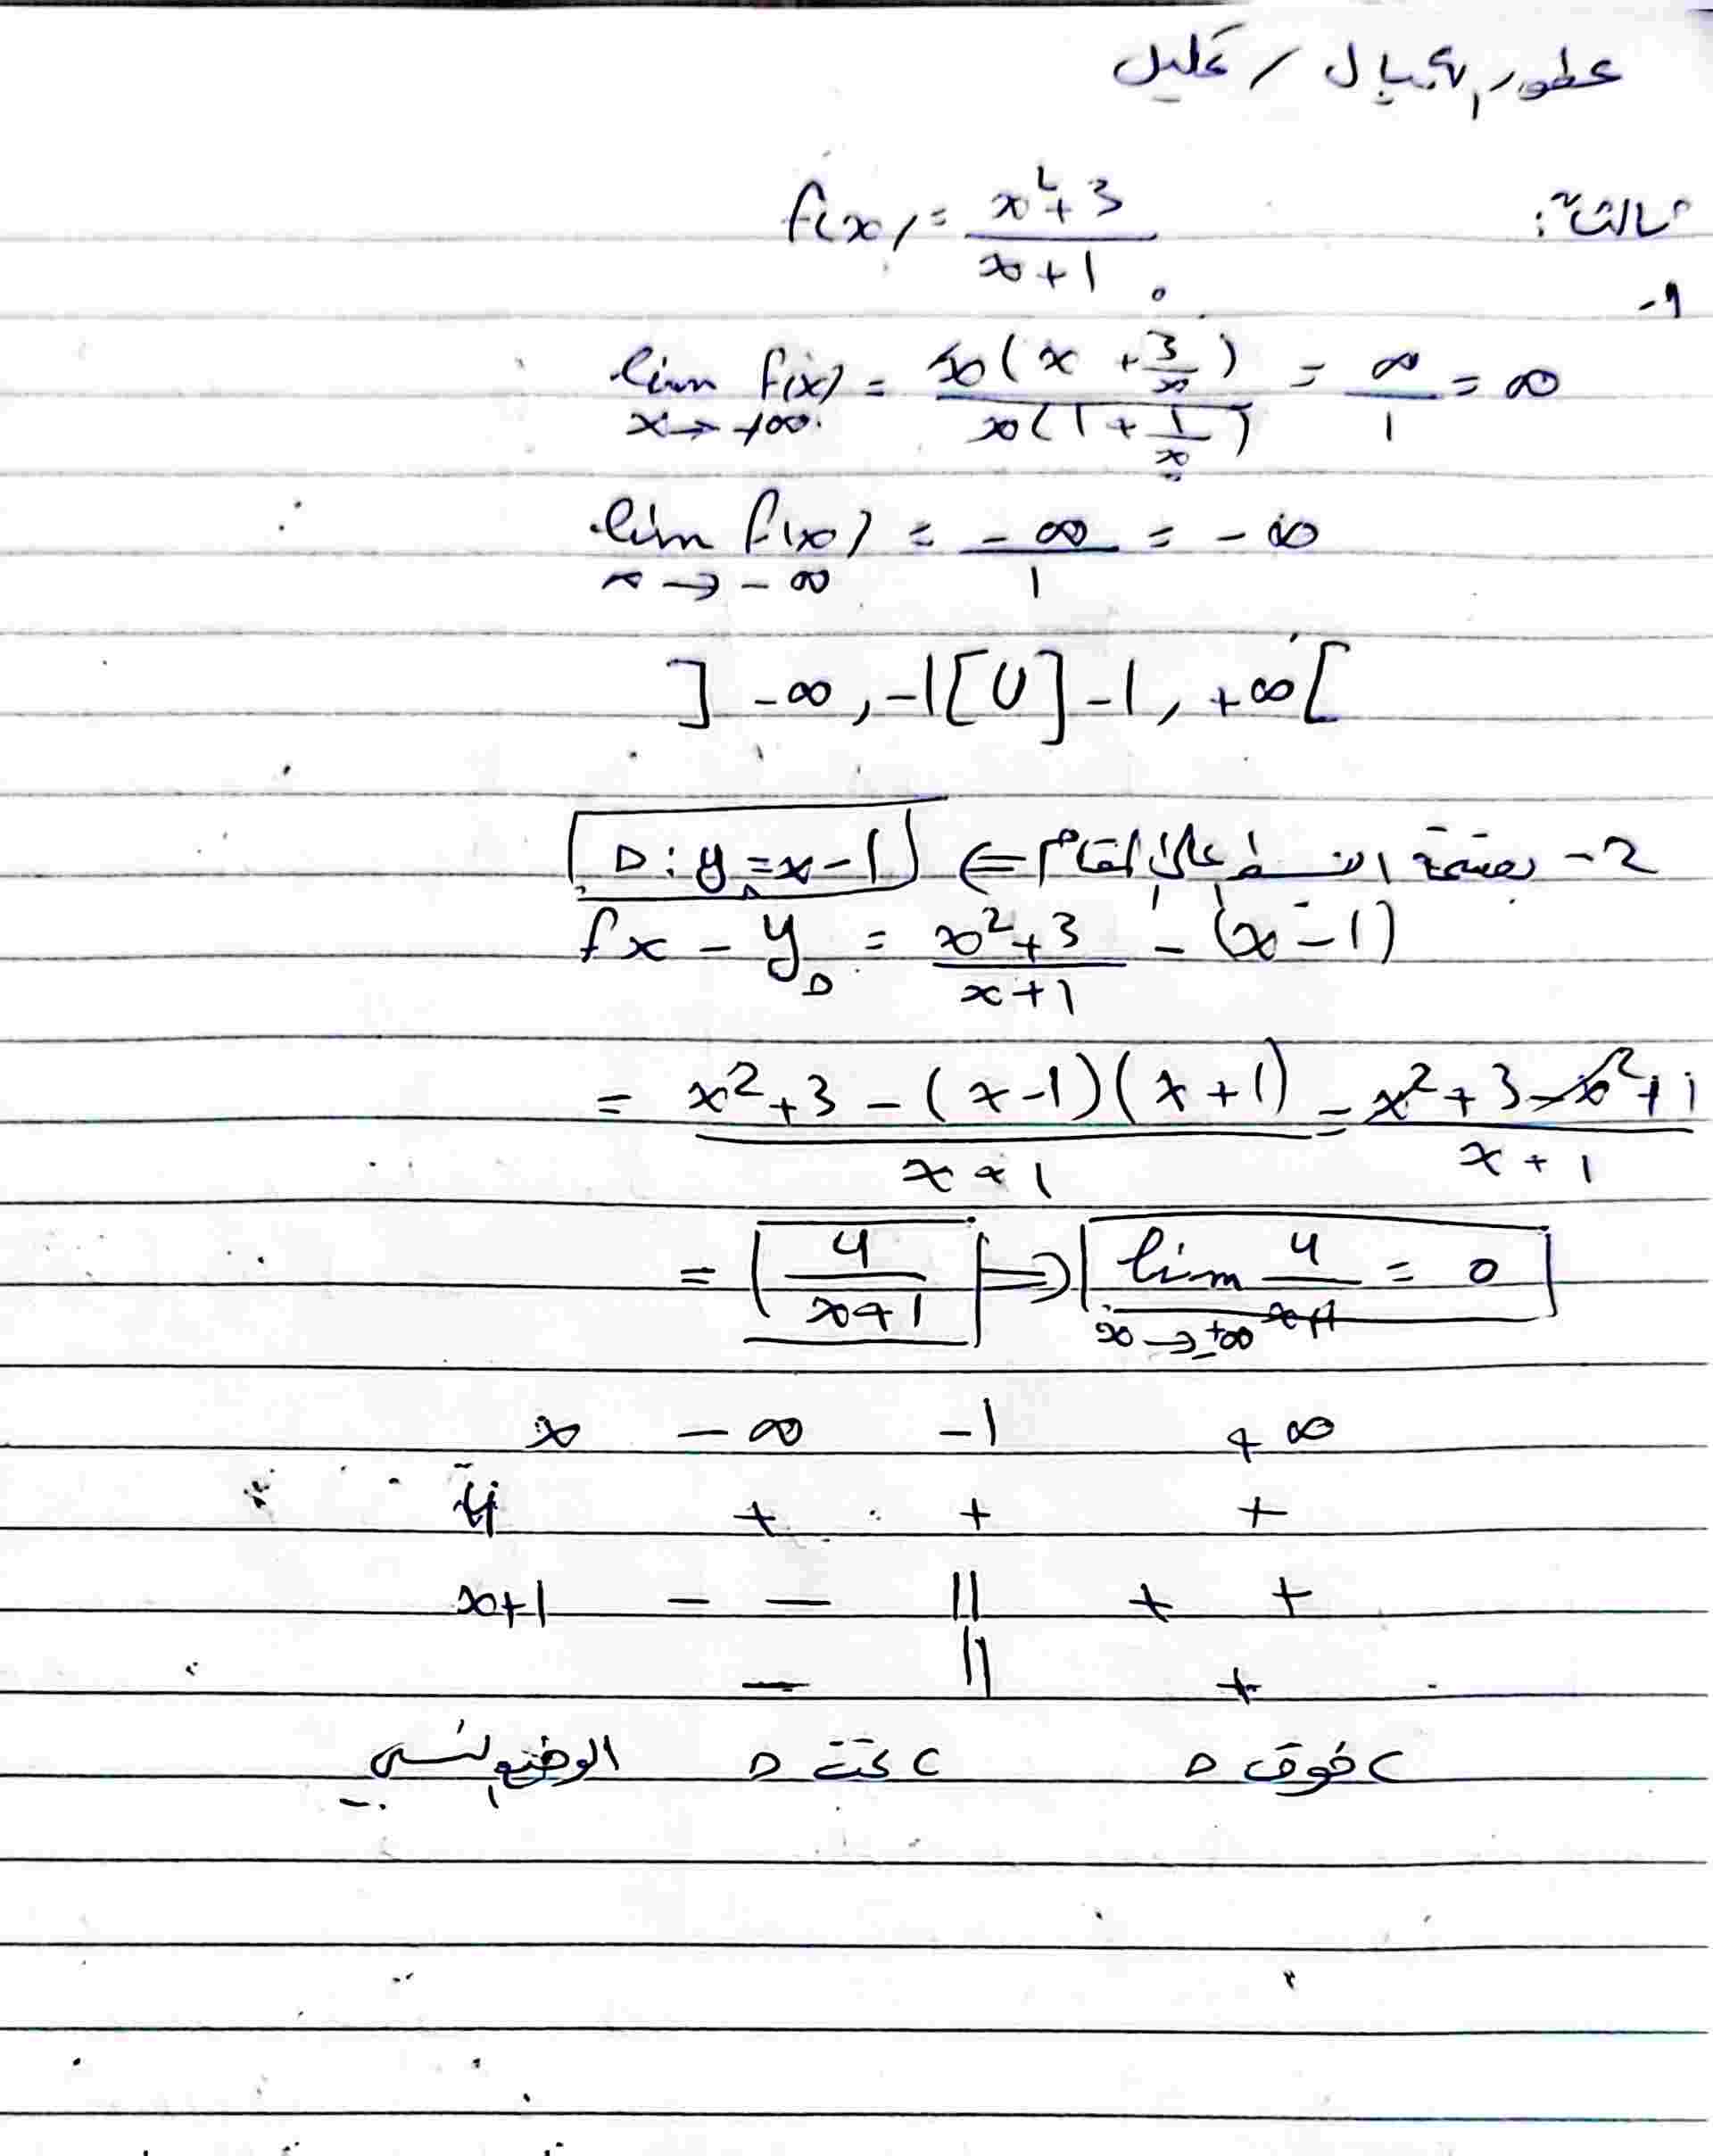 عطور الجبال / تحليل
ثالثاً: f(x) = \frac{x^2+3}{x+1}
1-
\lim_{x \to +\infty} f(x) = \frac{x(x + \frac{3}{x})}{x(1 + \frac{1}{x})} = \frac{\infty}{1} = \infty
\lim_{x \to -\infty} f(x) = \frac{-\infty}{1} = -\infty
]-∞, -1[ U ]-1, +∞[
2- بقسمة البسط على المقام ⇐ D: y_D = x-1
fx - y_D = \frac{x^2+3}{x+1} - (x-1)
= \frac{x^2+3-(x-1)(x+1)}{x+1} = \frac{x^2+3-x^2+1}{x+1}
= \frac{4}{x+1} ⇒ \lim_{x \to \pm\infty} \frac{4}{x+1} = 0
x -∞ -1 +∞
4 + + +
x+1 - - || + +
- || +
الوضع النسبي C تحت D C فوق D